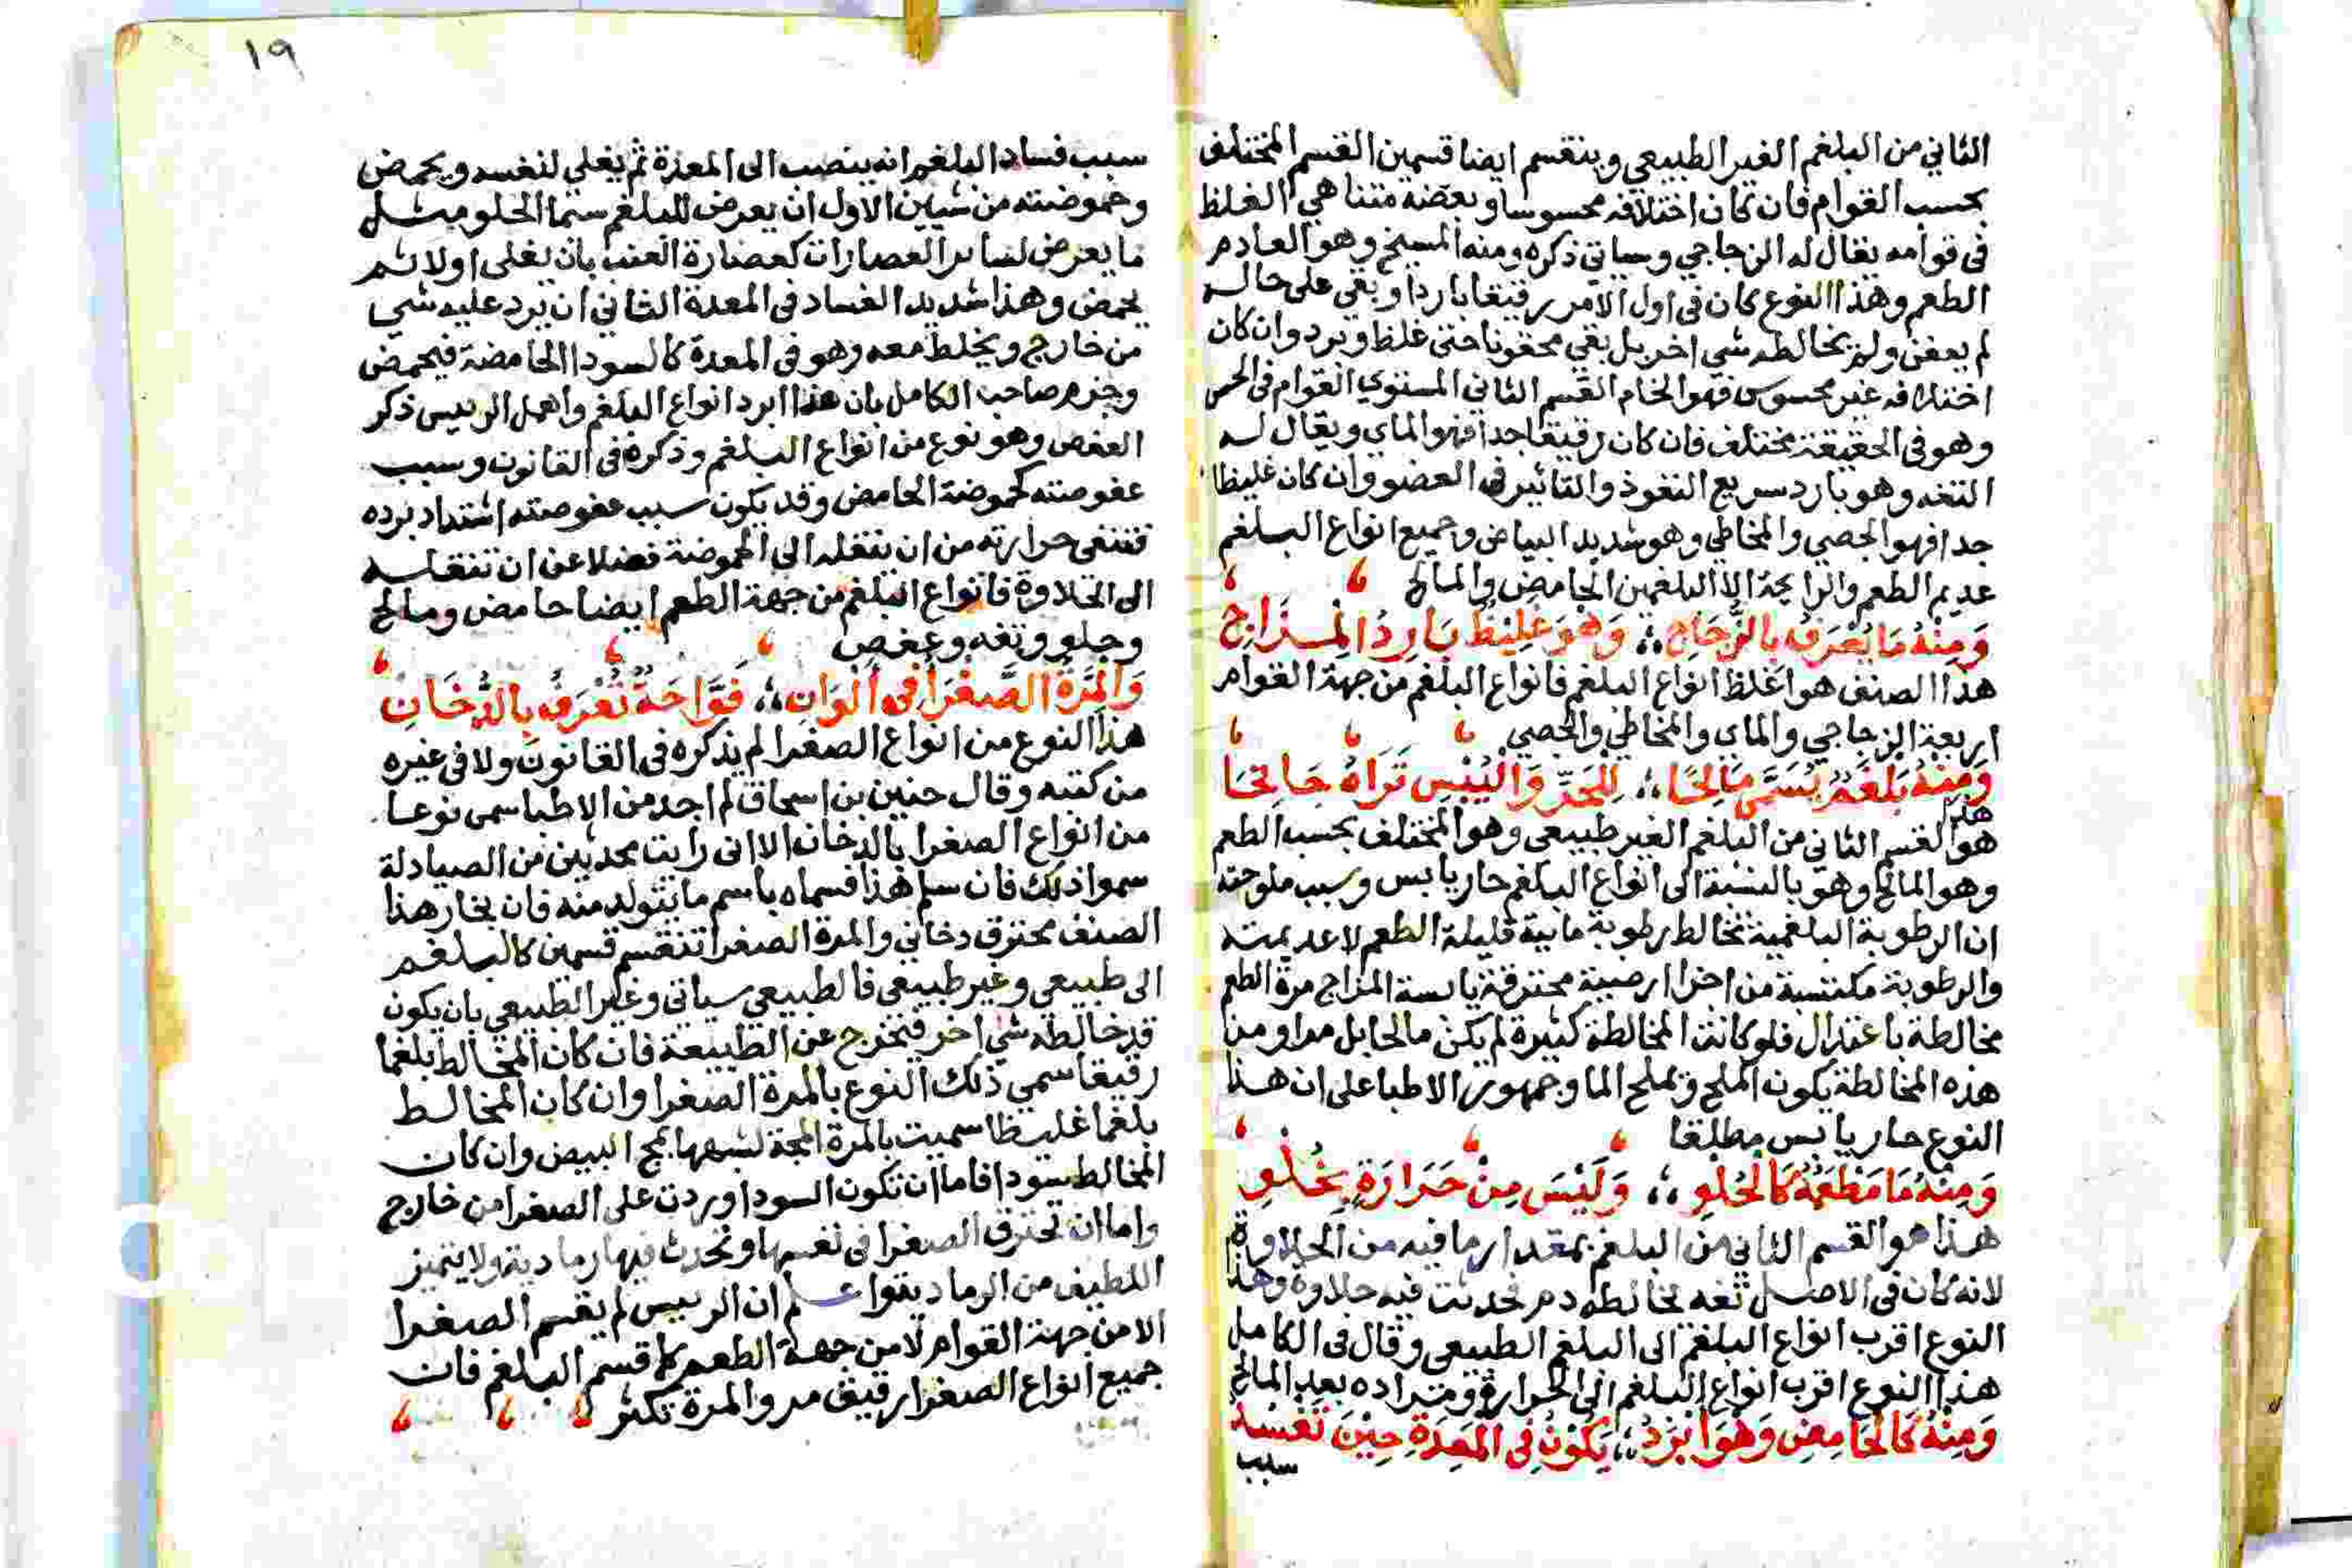 الثاني من البلغم الغير الطبيعي وينقسم ايضا قسمين القسم المختلف
بحسب القوام فان كان اختلافه محسوسا وبعضه متناهي الغلظ
في قوامه يقال له الزجاجي وسياتي ذكره ومنه المسيخ وهو العادم
الطعم وهذا النوع كان في اول الامر رقيقا باردا وبقي على حاله
لم يعفن ولم يخالطه شي اخر بل بقي محقونا حتى غلظ وبرد وان كان
اختلافه غير محسوس فهو الخام القسم الثاني المستوي القوام في الحس
وهو في الحقيقة مختلف فان كان رقيقا جدا فهو الماي ويقال له
التفه وهو بارد سريع النفوذ والتاثير في العضو وان كان غليظا
جدا فهو الجصي والمخاطي وهو شديد البياض وجميع انواع البلغم
عديم الطعم والرايحة الا البلغمين الحامض والمالح
وَمِنْهُ مَا يُعْرَفُ بِالزُّجَاجِ ؛؛ وَهُوَ غَلِيْظٌ بَارِدُ الْمِزَاجِ
هذا الصنف هو اغلظ انواع البلغم فانواع البلغم من جهة القوام
اربعة الزجاجي والماي والمخاطي والجصي
وَمِنْهُ بَلْغَمٌ يُسَمَّى مَالِحًا ؛؛ لِلْحَرِّ وَالْيُبْسِ تَرَاهُ جَانِحًا
هذا
هو القسم الثاني من البلغم الغير طبيعي وهو المختلف بحسب الطعم
وهو المالح وهو بالنسبة الى انواع البلغم حار يابس وسبب ملوحته
ان الرطوبة البلغمية تخالط رطوبة مايية قليلة الطعم لا عديمته
والرطوبة مكتسبة من اجزا ارضية محترقة يابسة المزاج مرة الطعم
مخالطة باعتدال فلو كانت المخالطة كثيرة لم يكن مالحا بل مرا ومن
هذه المخالطة يكون الملح وتملح الما وجمهور الاطبا على ان هذا
النوع حار يابس مطلقا
وَمِنْهُ مَا مَطْعَمُهُ كَالْحُلْوِ ؛؛ وَلَيْسَ مِنْ حَرَارَةٍ بِخُلْوِ
هذا هو القسم الثاني من البلغم بمقدار ما فيه من الحلاوة
لانه كان في الاصل تفه تخالطه دم فحدثت فيه حلاوة وهذا
النوع اقرب انواع البلغم الى البلغم الطبيعي وقال في الكامل
هذا النوع اقرب انواع البلغم الى الحرارة ومراده بعد المالح
وَمِنْهُ كَالْحَامِضِ وَهْوَ ابْرَدُ ؛؛ يَكُوْنُ فِي الْمَعِدَةِ حِيْنَ تَفْسُدُ
سبب
١٩
سبب فساد البلغم انه ينصب الى المعدة ثم يغلي لنفسه ويحمض
وحموضته من شيين الاول ان يعرض للبلغم سيما الحلو مثل
ما يعرض لساير العصارات كعصارة العنب بان يغلي اولا ثم
يحمض وهذا شديد الفساد في المعدة الثاني ان يرد عليه شي
من خارج ويخلط معه وهو في المعدة كالسودا الحامضة فيحمض
وجزم صاحب الكامل بان هذا ابرد انواع البلغم واهمل الرييس ذكر
العفص وهو نوع من انواع البلغم وذكره في القانون وسبب
عفوصته كحموضة الحامض وقد يكون سبب عفوصته اشتداد برده
فتنفى حرارته من ان ينقله الى الحموضة فضلا عن ان تنقله
الى الحلاوة فانواع البلغم من جهة الطعم ايضا حامض ومالح
وحلو وتفه وعفص
وَالْمِرَّةُ الصَّفْرَا فِي أَلْوَانِ ؛؛ فَوَاحِدَةٌ تُعْرَفُ بِالدُّخَانِ
هذا النوع من انواع الصفرا لم يذكره في القانون ولا في غيره
من كتبه وقال حنين بن اسحاق لم اجد من الاطبا سمى نوعا
من انواع الصفرا بالدخان الا اني رايت محدثين من الصيادلة
سموا ذلك فان سلم هذا فسماه باسم ما يتولد منه فان بخار هذا
الصنف محترق دخاني والمرة الصفرا تنقسم قسمين كالبلغم
الى طبيعي وغير طبيعي فالطبيعي سياتي وغير الطبيعي بان يكون
قد خالطه شي اخر فتخرج عن الطبيعة فان كان المخالط بلغما
رقيقا سمي ذلك النوع بالمرة الصفرا وان كان المخالط
بلغما غليظا سميت بالمرة المحة لشبهها بمح البيض وان كان
المخالط سودا فاما ان تكون السودا وردت على الصفرا من خارج
واما ان تحترق الصفرا في نفسها وتحدث فيها رمادية ولا يتميز
اللطيف من الرمادية واعلم ان الرييس لم يقسم الصفرا
الا من جهة القوام لا من جهة الطعم كما قسم البلغم فان
جميع انواع الصفرا رقيق مر والمرة تكثر